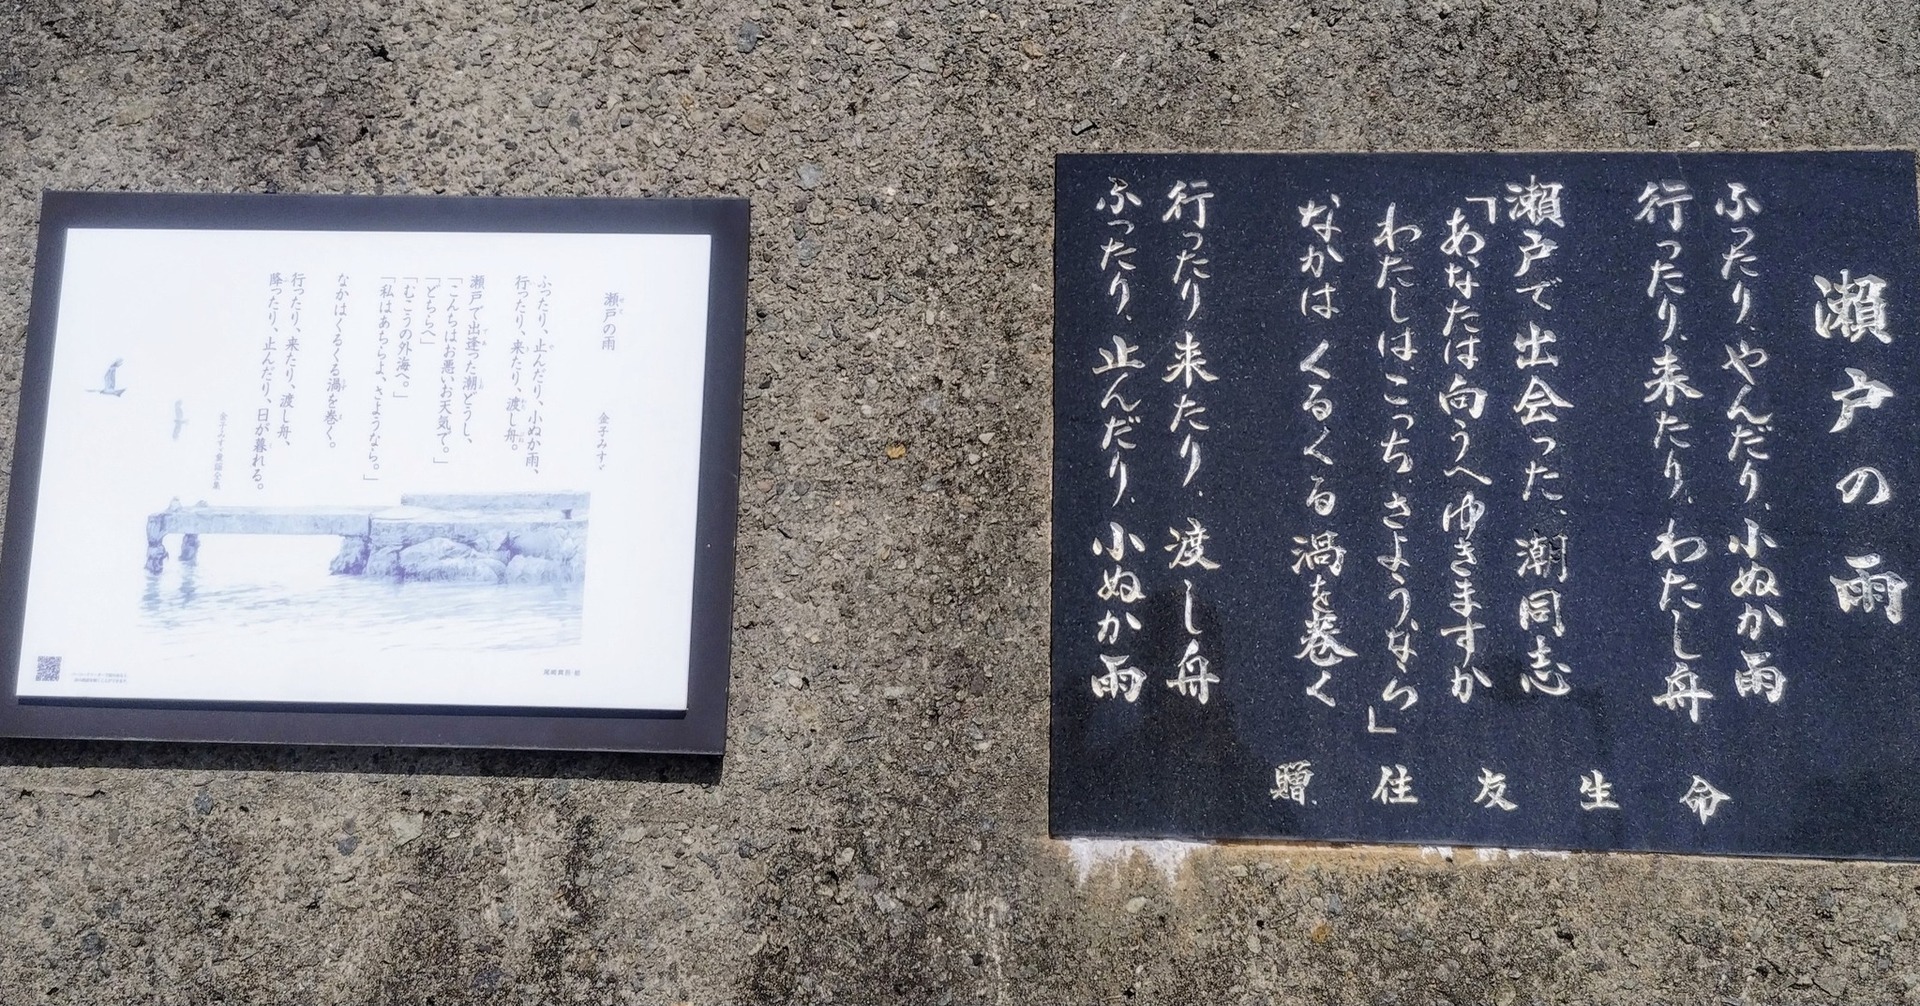 瀬戸の雨
金子みすゞ
ふったり、止んだり、小ぬか雨、
行ったり、来たり、渡し舟。
瀬戸で出逢った潮どうし、
「こんちはお悪いお天気で。」
「どちらへ」
「むこうの外海へ。」
「私はあちらよ、さようなら。」
なかはくるくる渦を巻く。
行ったり、来たり、渡し舟、
降ったり、止んだり、日が暮れる。
金子みすゞ童謡全集
瀬戸の雨
ふったり、やんだり、小ぬか雨
行ったり、来たり、わたし舟
瀬戸で出会った、潮同志
「あなたは向うへゆきますか
わたしはこっち、さようなら」
なかは くるくる 渦を巻く
行ったり 来たり、渡し舟
ふったり、止んだり、小ぬか雨
贈 住友生命